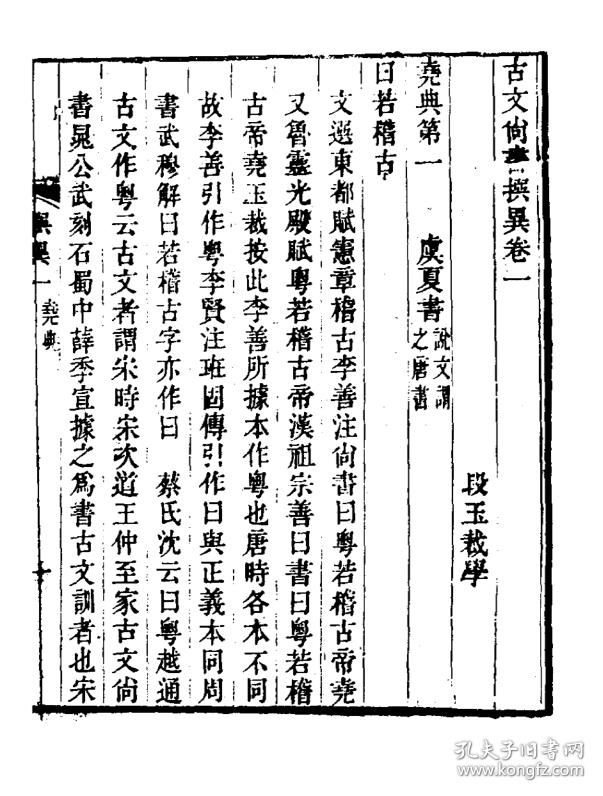 古文尚書撰異卷一
段玉裁學
堯典第一　虞夏書說文謂之唐書
曰若稽古
文選東都賦憲章稽古李善注尙書曰粵若稽古帝堯
又魯靈光殿賦粵若稽古帝漢祖宗善曰書曰粵若稽
古帝堯玉裁按此李善所據本作粵也唐時各本不同
故李善引作粵李賢注班固傳引作曰與正義本同周
書武穆解曰若稽古字亦作曰　蔡氏沈云曰粵越通
古文作粵云古文者謂宋時宋次道王仲至家古文尙
書晁公武刻石蜀中薛季宣據之爲書古文訓者也宋
撰異一 堯典
孔夫子旧書网
www.kongfz.com